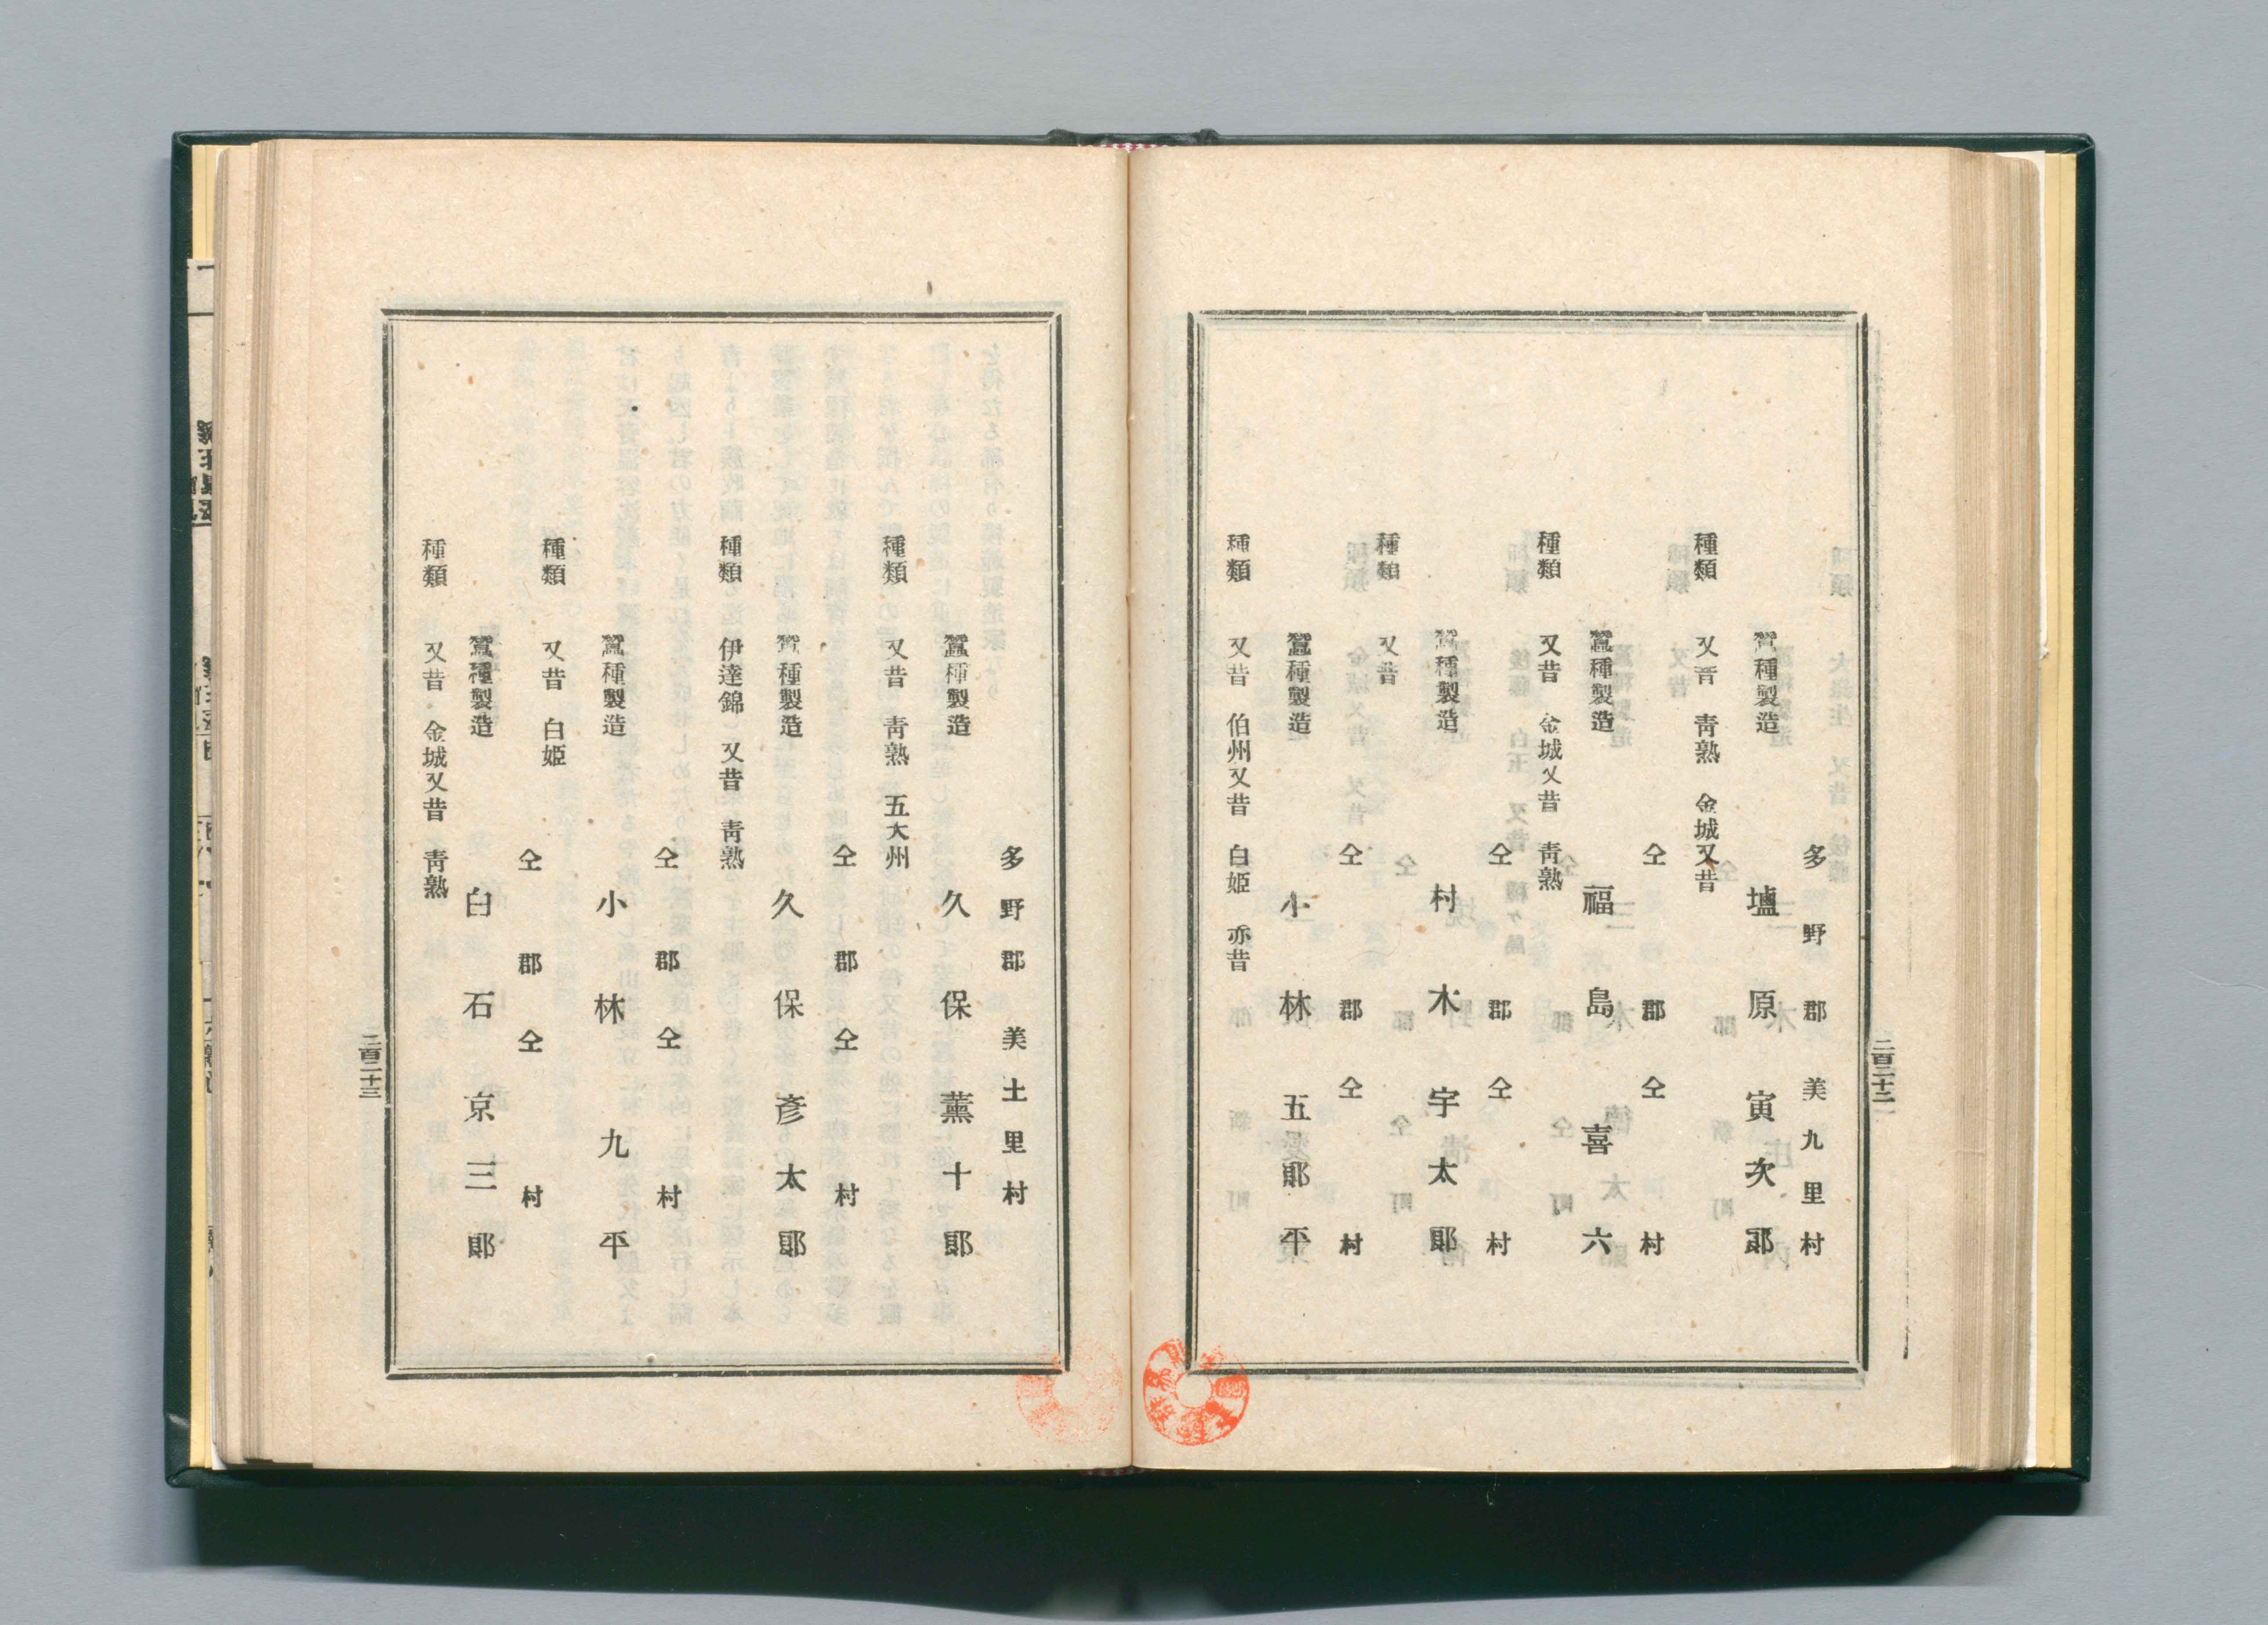 多野郡美九里村
蠶種製造 壗原寅次郞
種類 又昔 靑熟 金城又昔
仝郡仝村
蠶種製造 福島喜六
種類 又昔 金城又昔 靑熟
仝郡仝村
蠶種製造 村木宇太郞
種類 又昔
仝郡仝村
蠶種製造 小林五郞平
種類 又昔 伯州又昔 白姬 赤昔
二百二十二
多野郡美土里村
蠶種製造 久保薰十郞
種類 又昔 靑熟 五大州
仝郡仝村
蠶種製造 久保彥太郞
種類 伊達錦 又昔 靑熟
仝郡仝村
蠶種製造 小林九平
種類 又昔 白姬
仝郡仝村
蠶種製造 白石京三郞
種類 又昔 金城又昔 靑熟
二百二十三